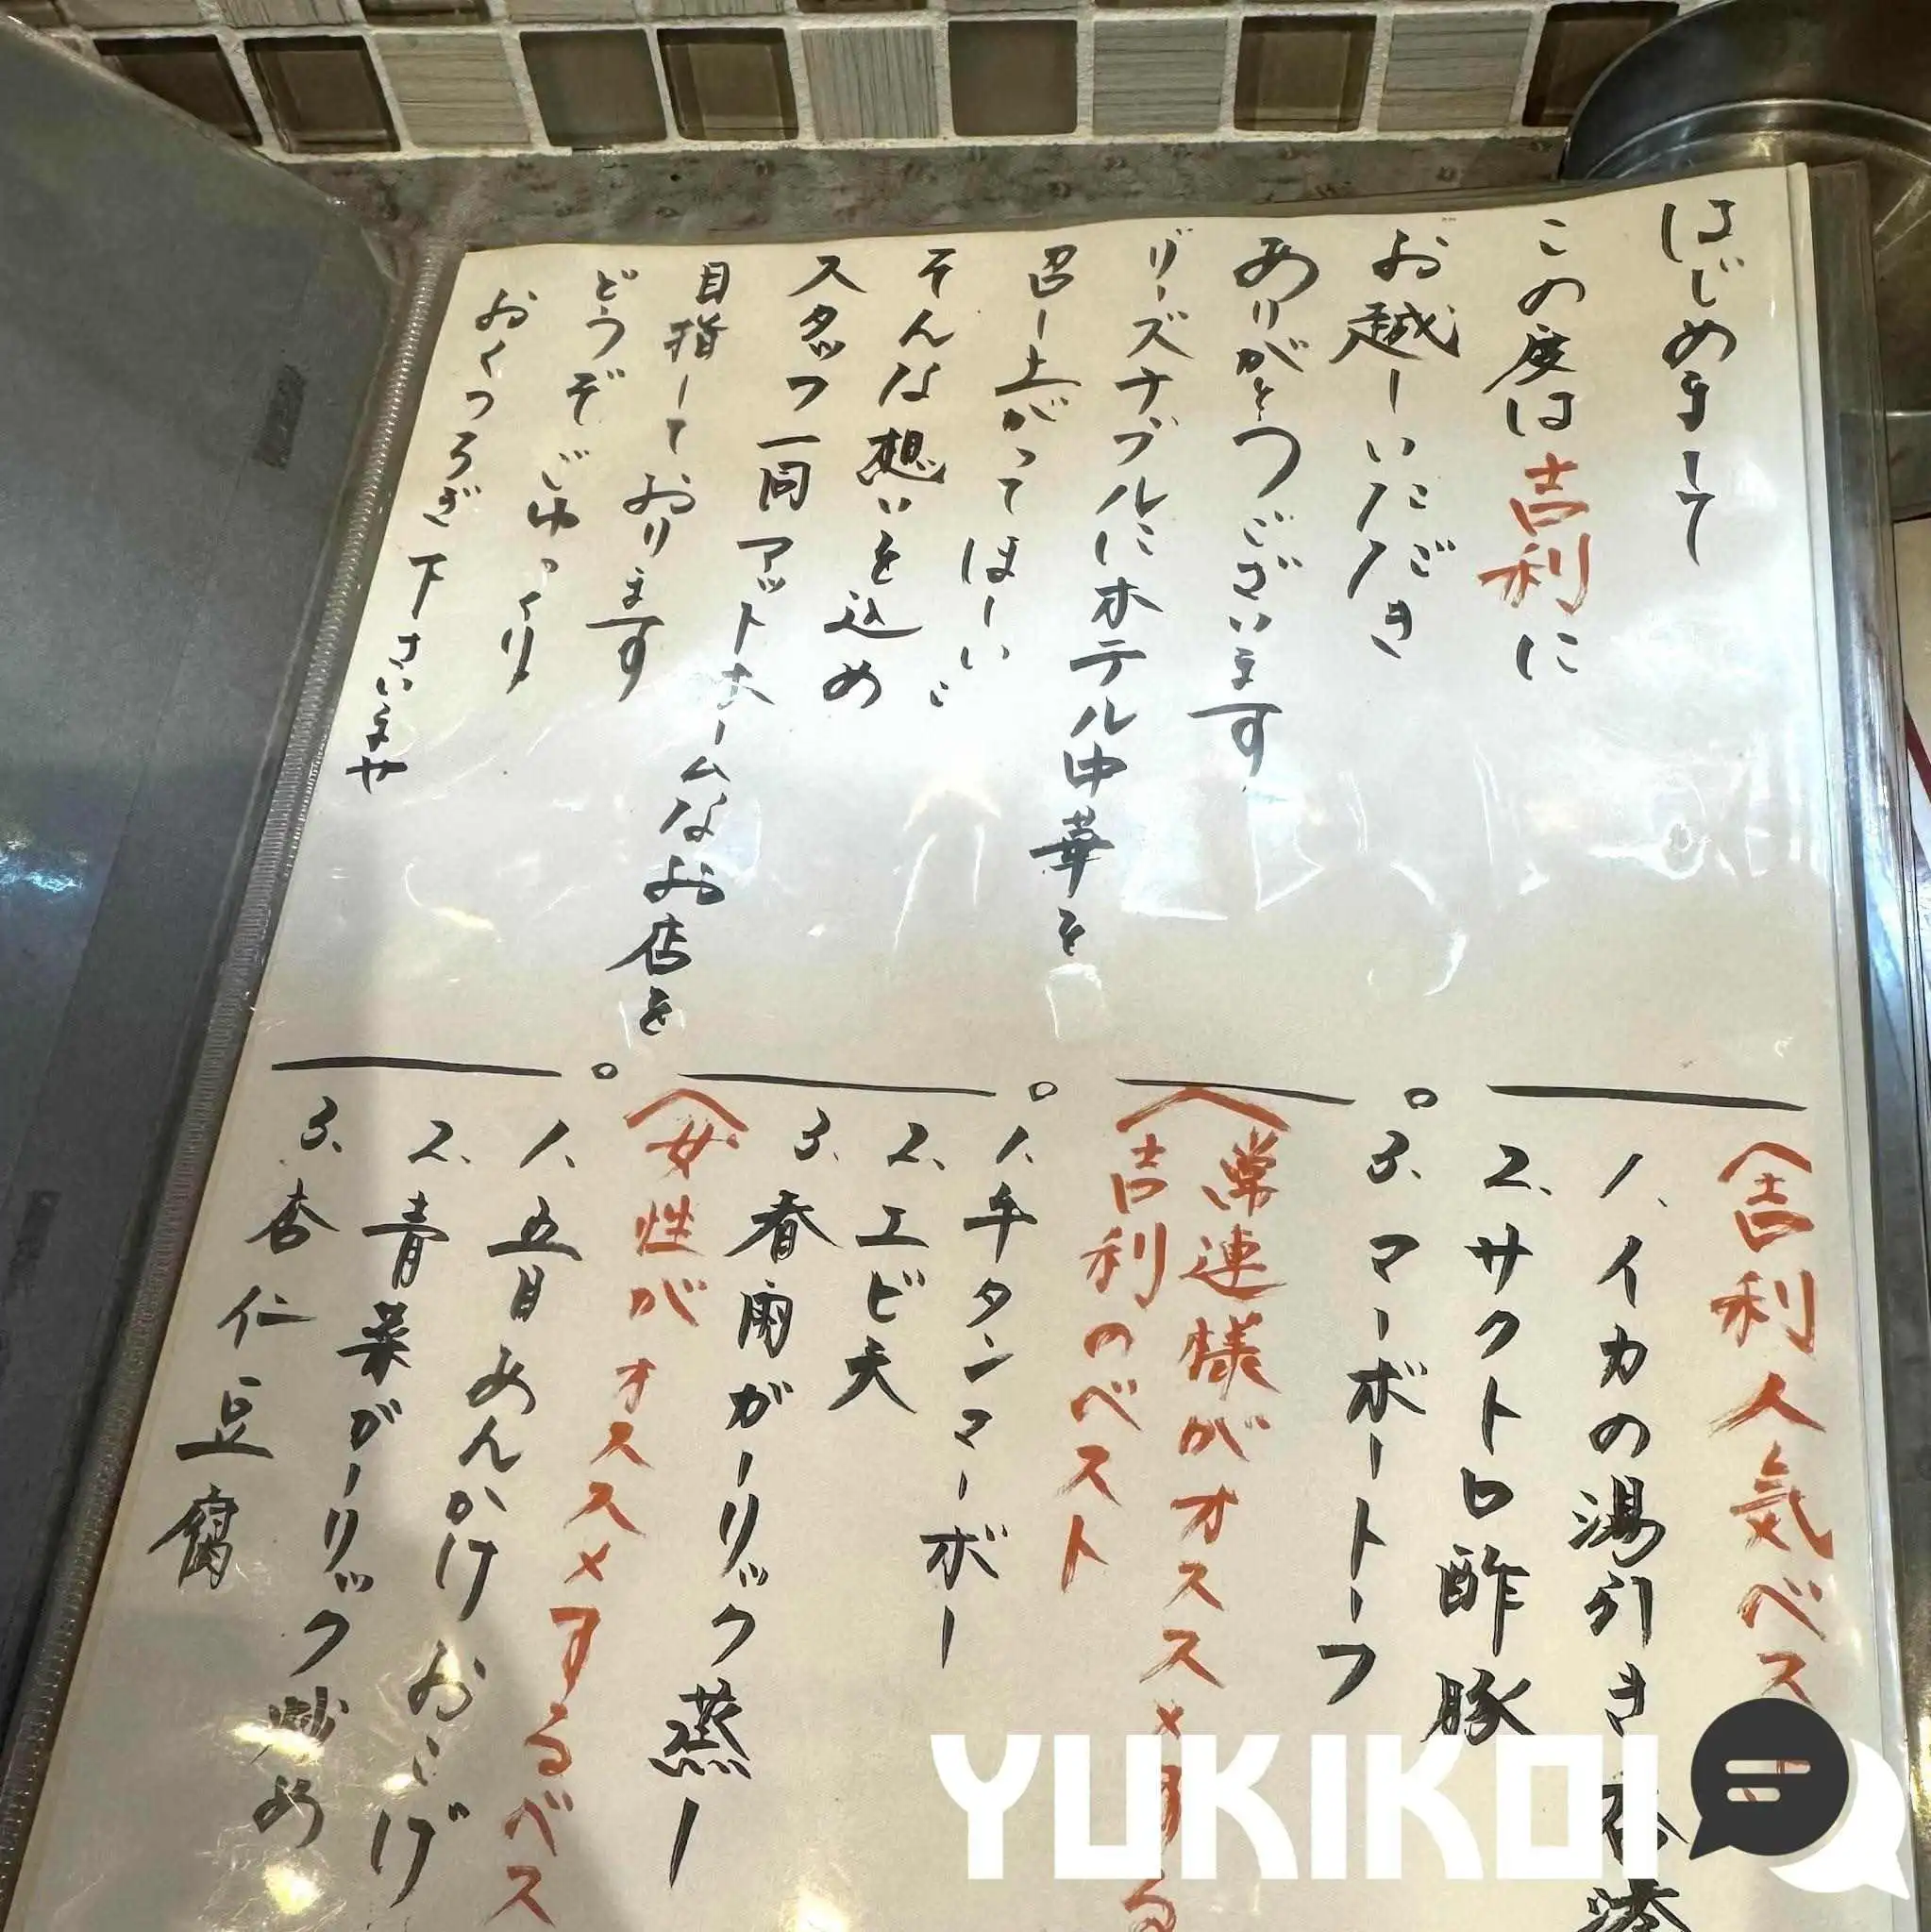 はじめまして
この度は吉利に
お越しいただき
ありがとうございます
リーズナブルにホテル中華を
召し上がってほしい
そんな想いを込め
スタッフ一同アットホームなお店を
目指しております
どうぞごゆっくり
おくつろぎ下さいませ
〈吉利人気ベス
1、イカの湯引き
2、サクトロ酢豚
3、マーボートーフ
〈常連様がオススメする
吉利のベスト
1、牛タンマーボー
2、エビ天
3、春雨ガーリック蒸し
〈女性がオススメするベス
1、五目あんかけおこげ
2、青菜ガーリック炒め
3、杏仁豆腐
YUKIKOI